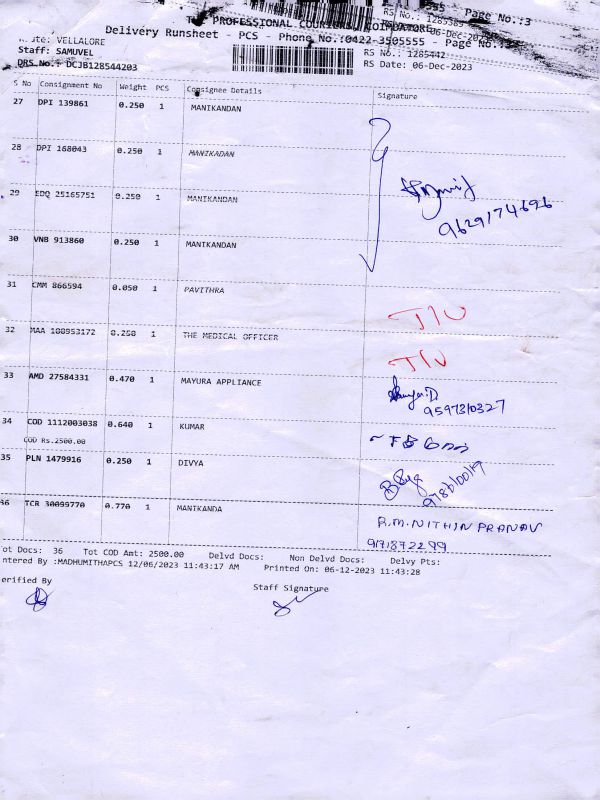 THE PROFESSIONAL COURIERS, COIMBATORE
Page No.:3
Delivery Runsheet - PCS - Phone No.:0422-3505555 - Page No.:3
RS No.: 1285442
RS Date: 06-Dec-2023
Route: VELLALORE
Staff: SAMUVEL
DRS No.: DCJB128544203
S No Consignment No Weight PCS Consignee Details Signature
27 DPI 139861 0.250 1 MANIKANDAN
28 DPI 168043 0.250 1 MANIKADAN
29 EDQ 25165751 0.250 1 MANIKANDAN
9629174696
30 VNB 913860 0.250 1 MANIKANDAN
31 CMM 866594 0.050 1 PAVITHRA
32 MAA 100953172 0.250 1 THE MEDICAL OFFICER
33 AMD 27584331 0.470 1 MAYURA APPLIANCE
9597310327
34 COD 1112003038 0.640 1 KUMAR
COD Rs.2500.00
35 PLN 1479916 0.250 1 DIVYA
36 TCR 30099770 0.770 1 MANIKANDA R.M.NITHIN PRANAV
Tot Docs: 36 Tot COD Amt: 2500.00 Delvd Docs: Non Delvd Docs: Delvy Pts:
Entered By :MADHUMITHAPCS 12/06/2023 11:43:17 AM Printed On: 06-12-2023 11:43:28
Verified By
Staff Signature